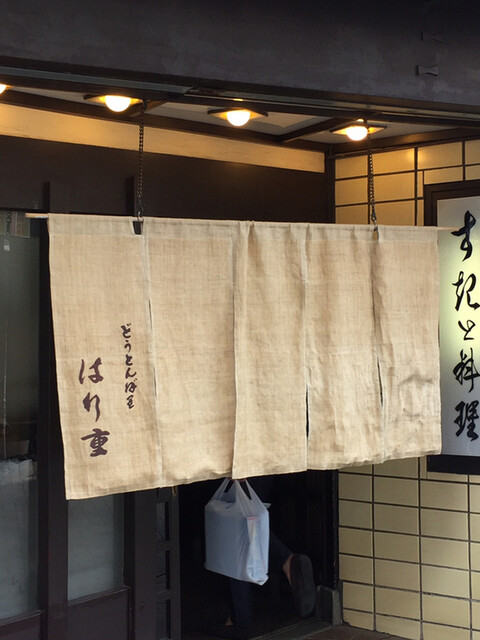 どうとんぼり
はり重
すき と料理